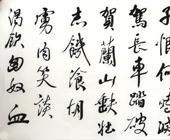 子恨何時滅
駕長車踏破
賀蘭山缺壯
志饑飡胡
虜肉笑談
渴飲匈奴血